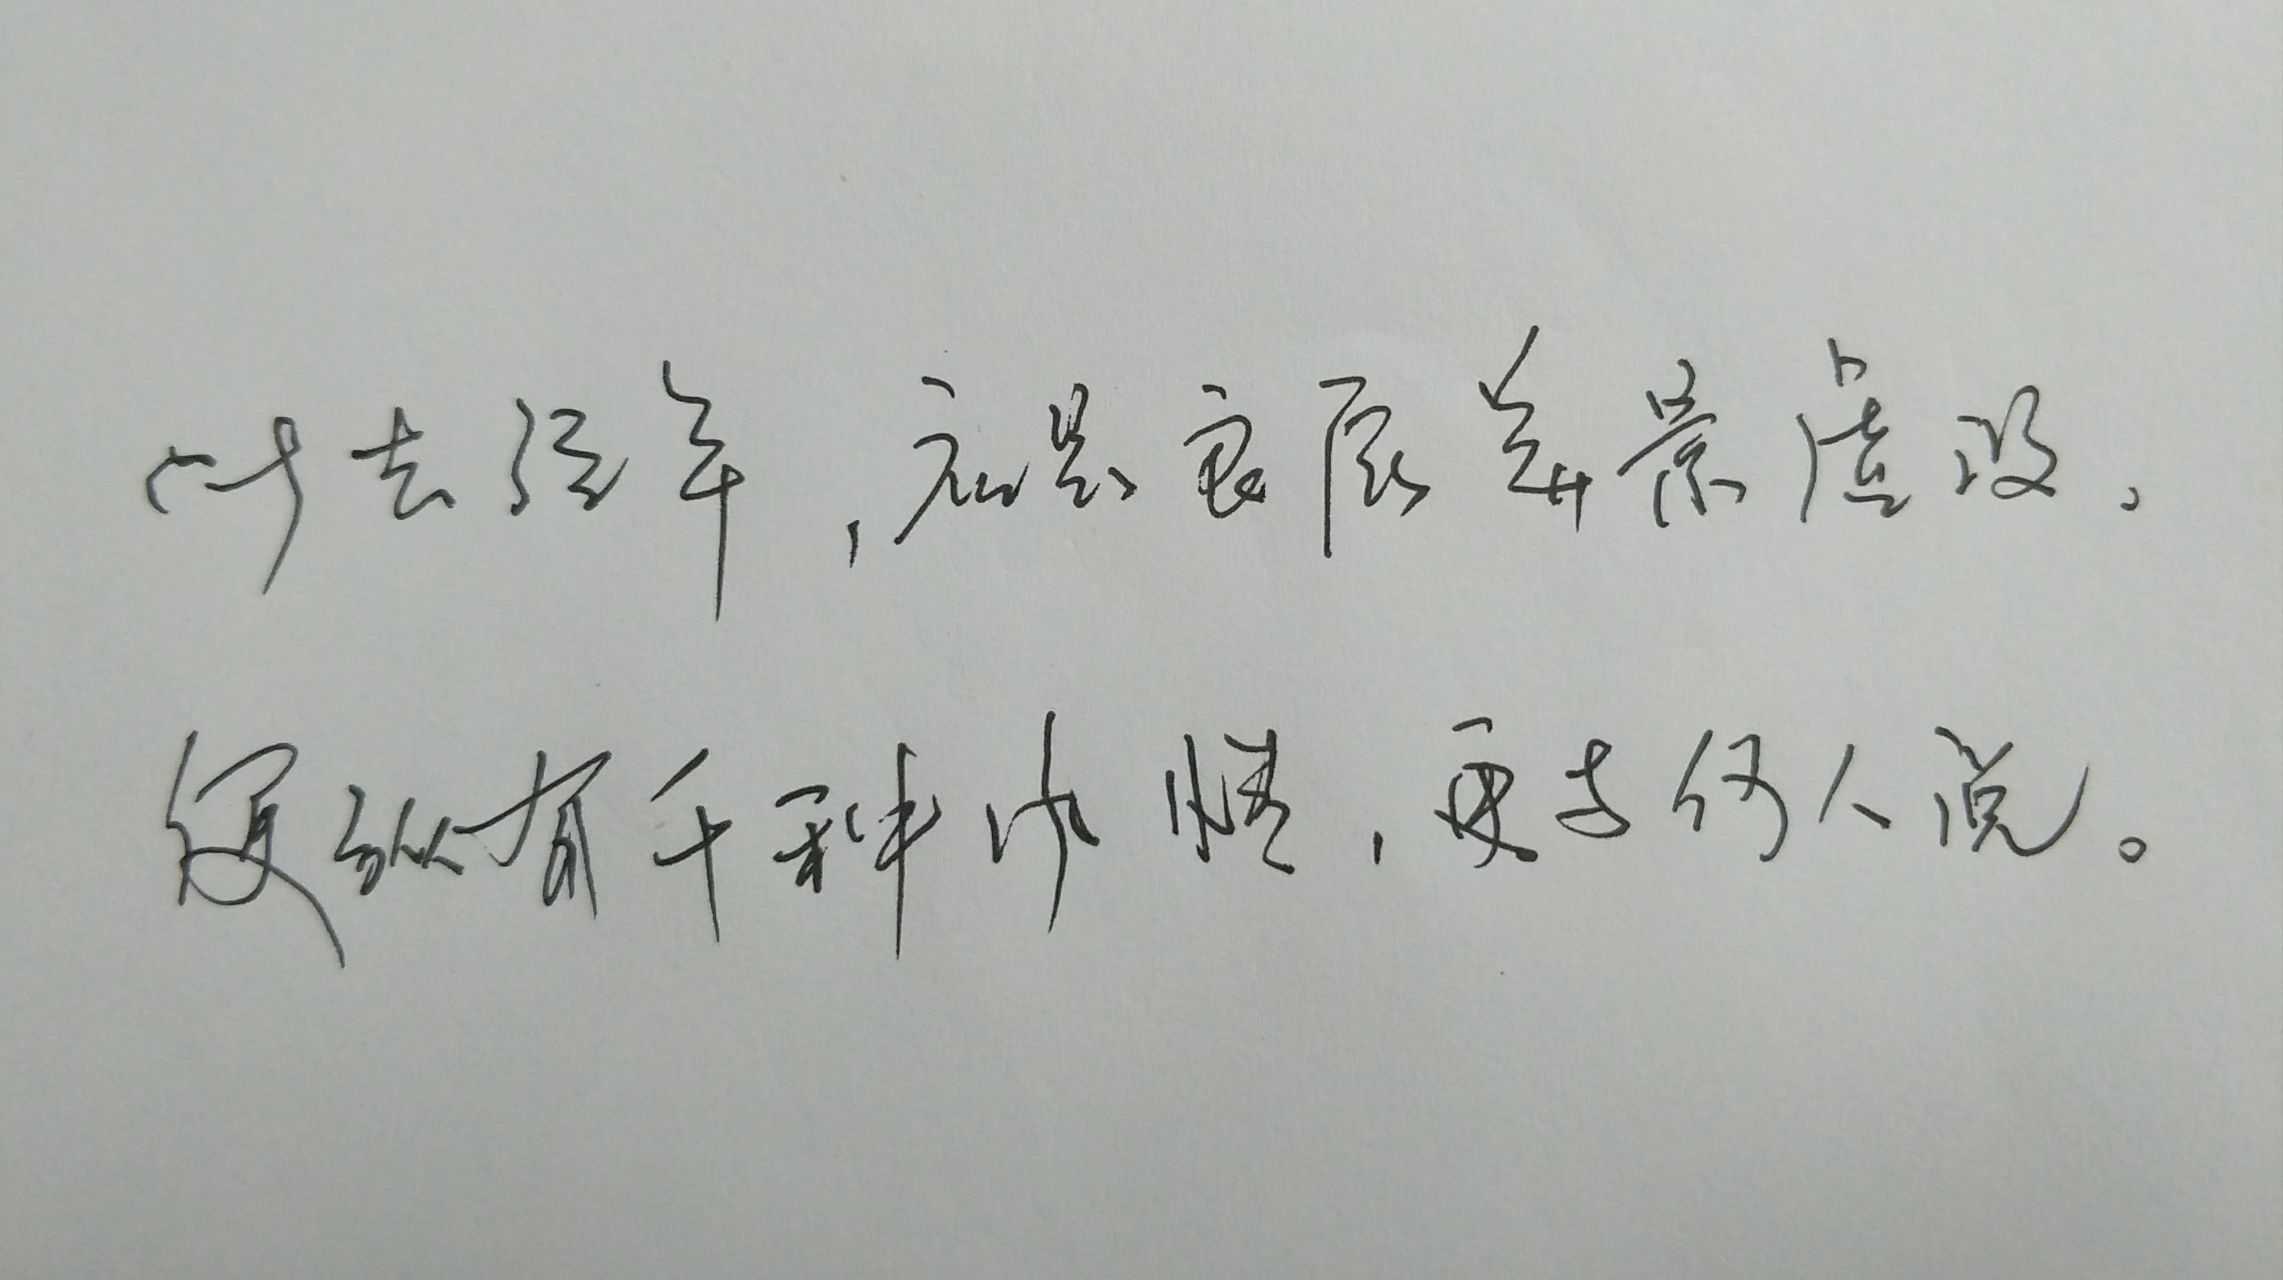 此去经年,应是良辰美景虚设.
便纵有千种风情,更与何人说。